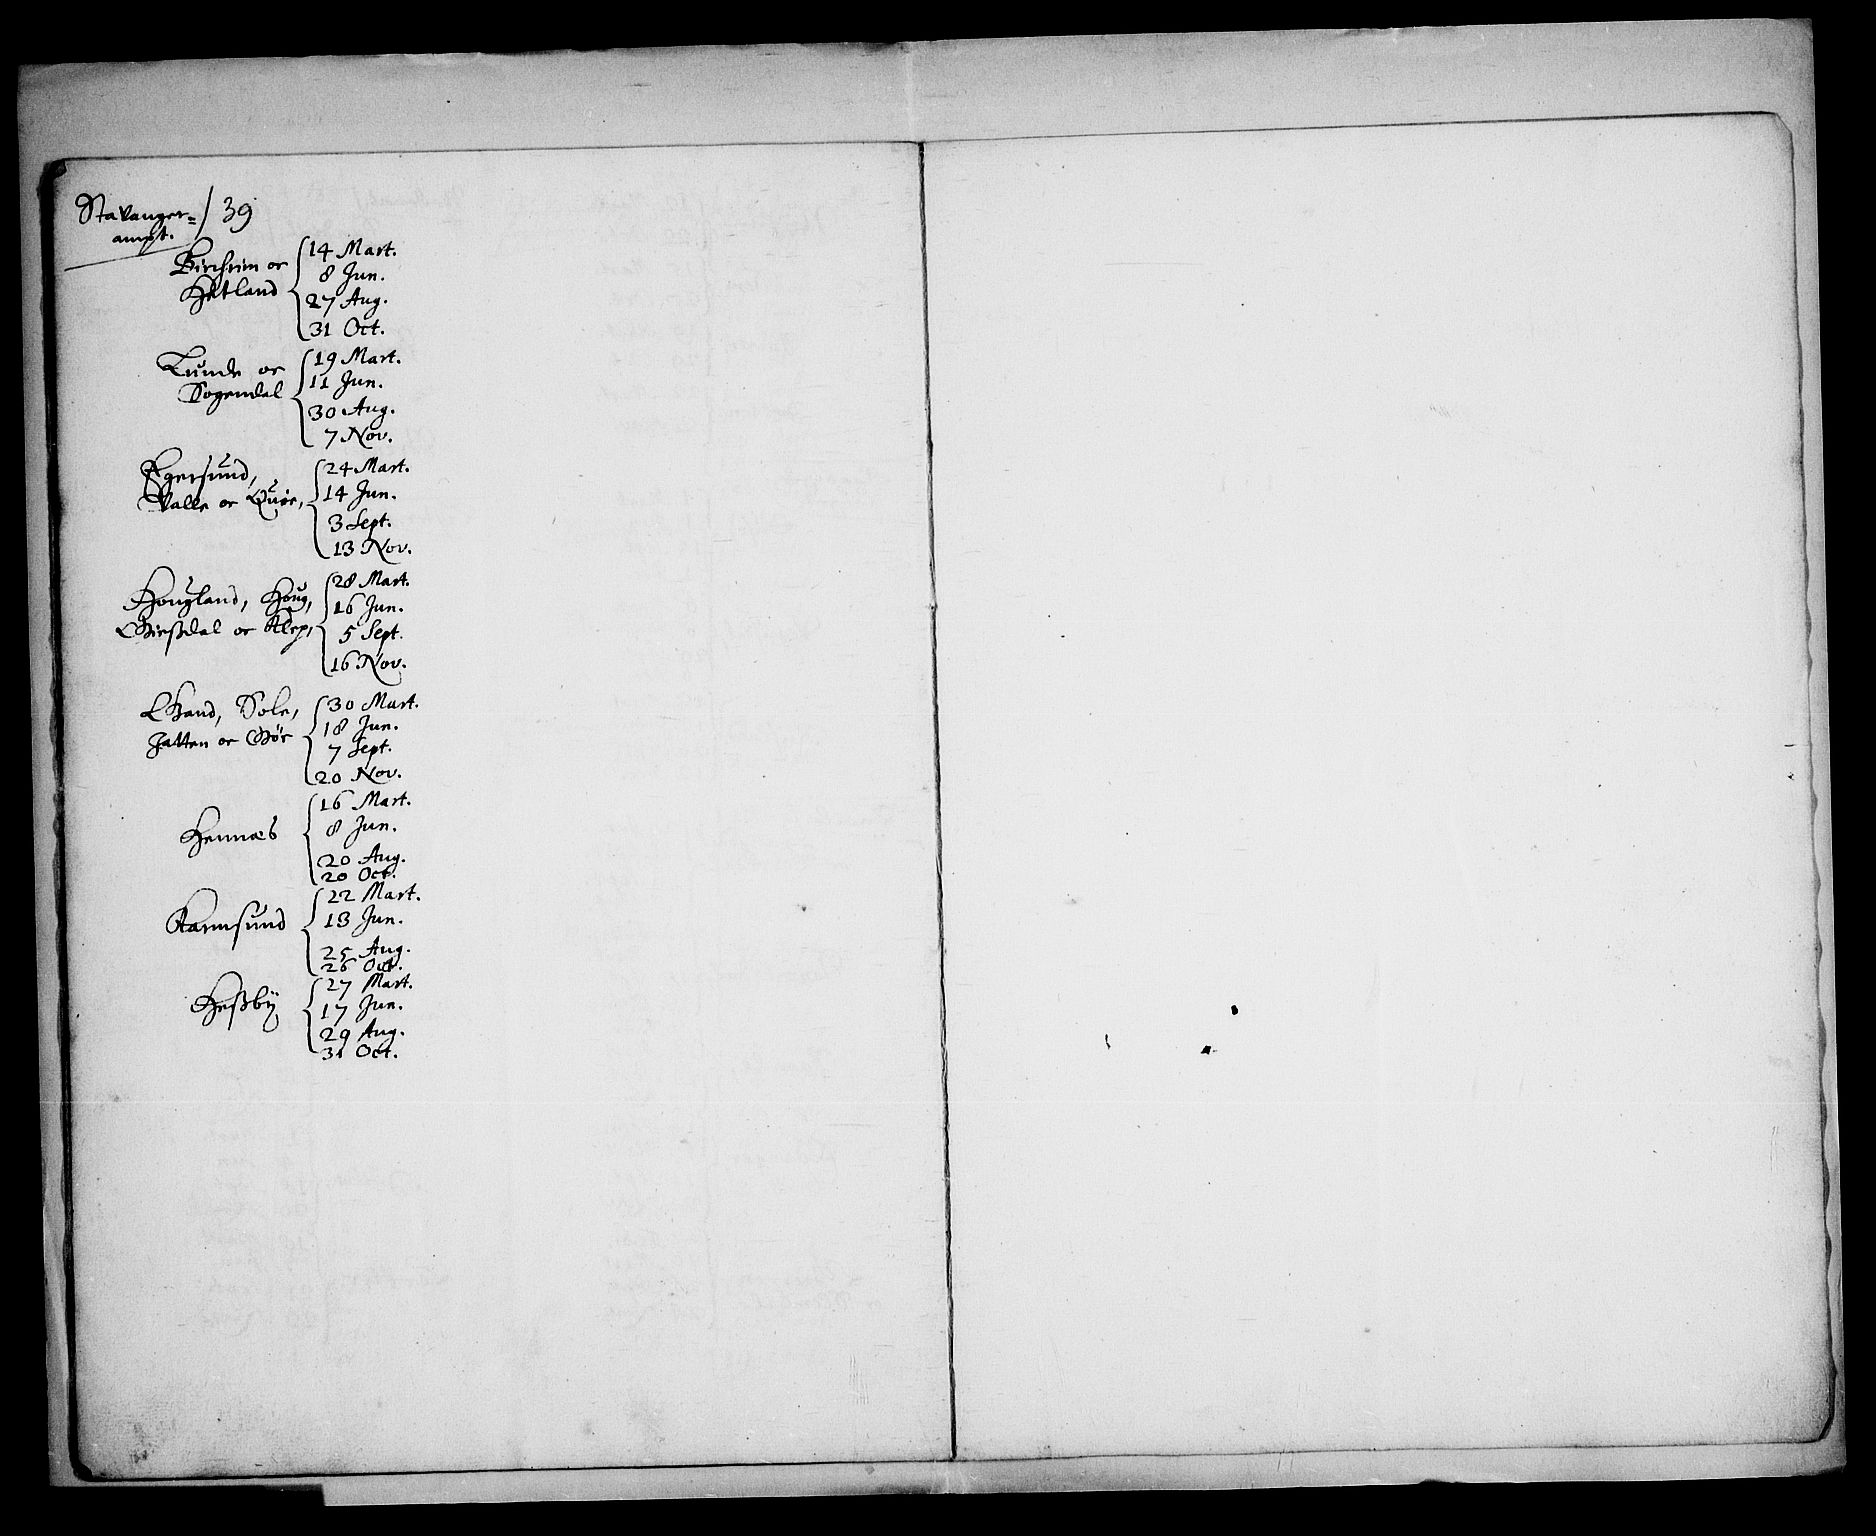 Stavanger= / 39
ampt.
Bircheim oc
Hetland
14 Mart.
8 Jun.
27 Aug.
31 Oct.
Lunde oc
Sogendal
19 Mart.
11 Jun.
30 Aug.
7 Nov.
Egersund,
Valle oc
24 Mart.
14 Jun.
3 Sept.
13 Nov.
Hougland, Houg,
Giesdal oc Klep,
28 Mart.
16 Jun.
5 Sept.
16 Nov.
Gand, Sole,
Jatten oc
30 Mart.
18 Jun.
7 Sept.
20 Nov.
Hennæs
16 Mart.
8 Jun.
20 Aug.
20 Oct.
Karmsund
22 Mart.
13 Jun.
25 Aug.
26 Oct.
Heßbÿ
27 Mart.
17 Jun.
29 Aug.
31 Oct.